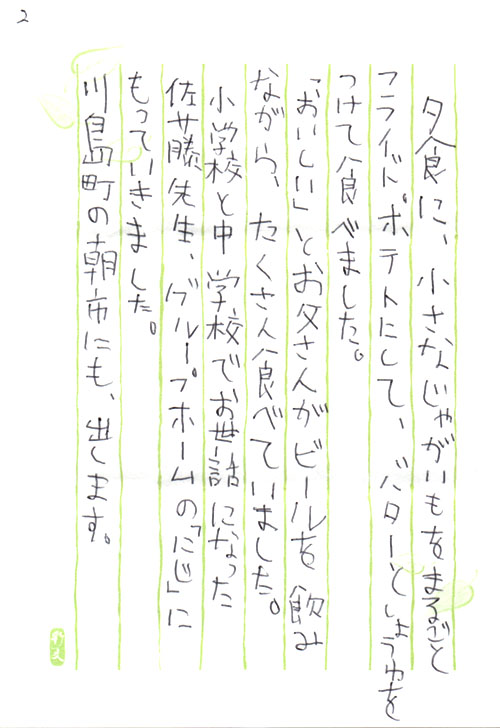 2
夕食に、小さなじゃがいもをまるごと
フライドポテトにして、バターとしょうゆを
つけて食べました。
「おいしい」とお父さんがビールを飲み
ながら、たくさん食べていました。
小学校と中学校でお世話になった
佐藤先生、グループホームの「にじ」に
もっていきました。
川島町の朝市にも、出します。